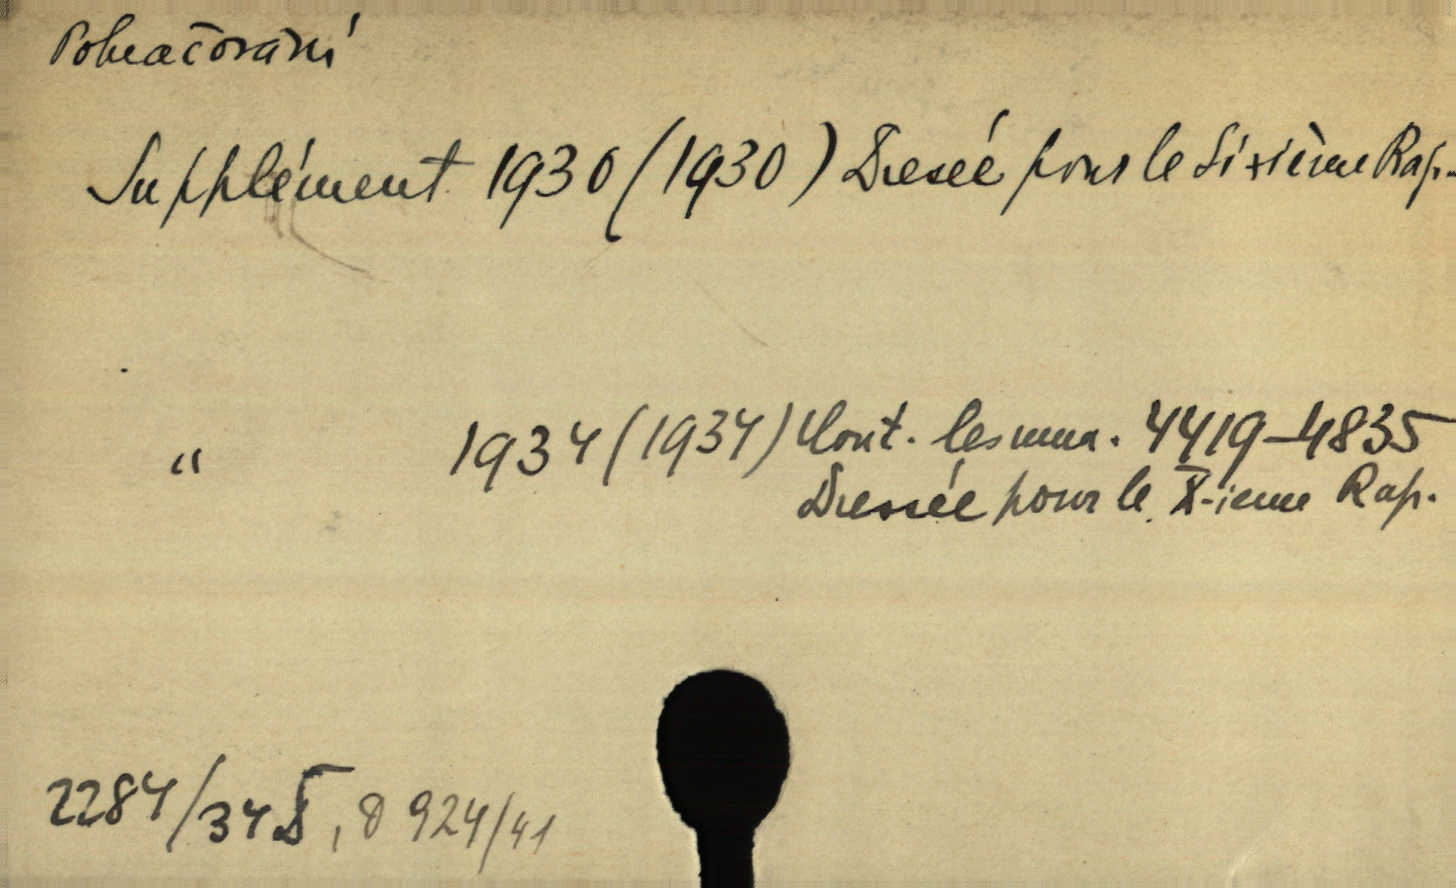 Pokračování
Supplément 1930 (1930) Dresée pour le Sixième Rap.
" 1934 (1934) Cont. les num. 4419-4835
Dressée pour le X-ieme Rap.
2284/34 , D 924/41